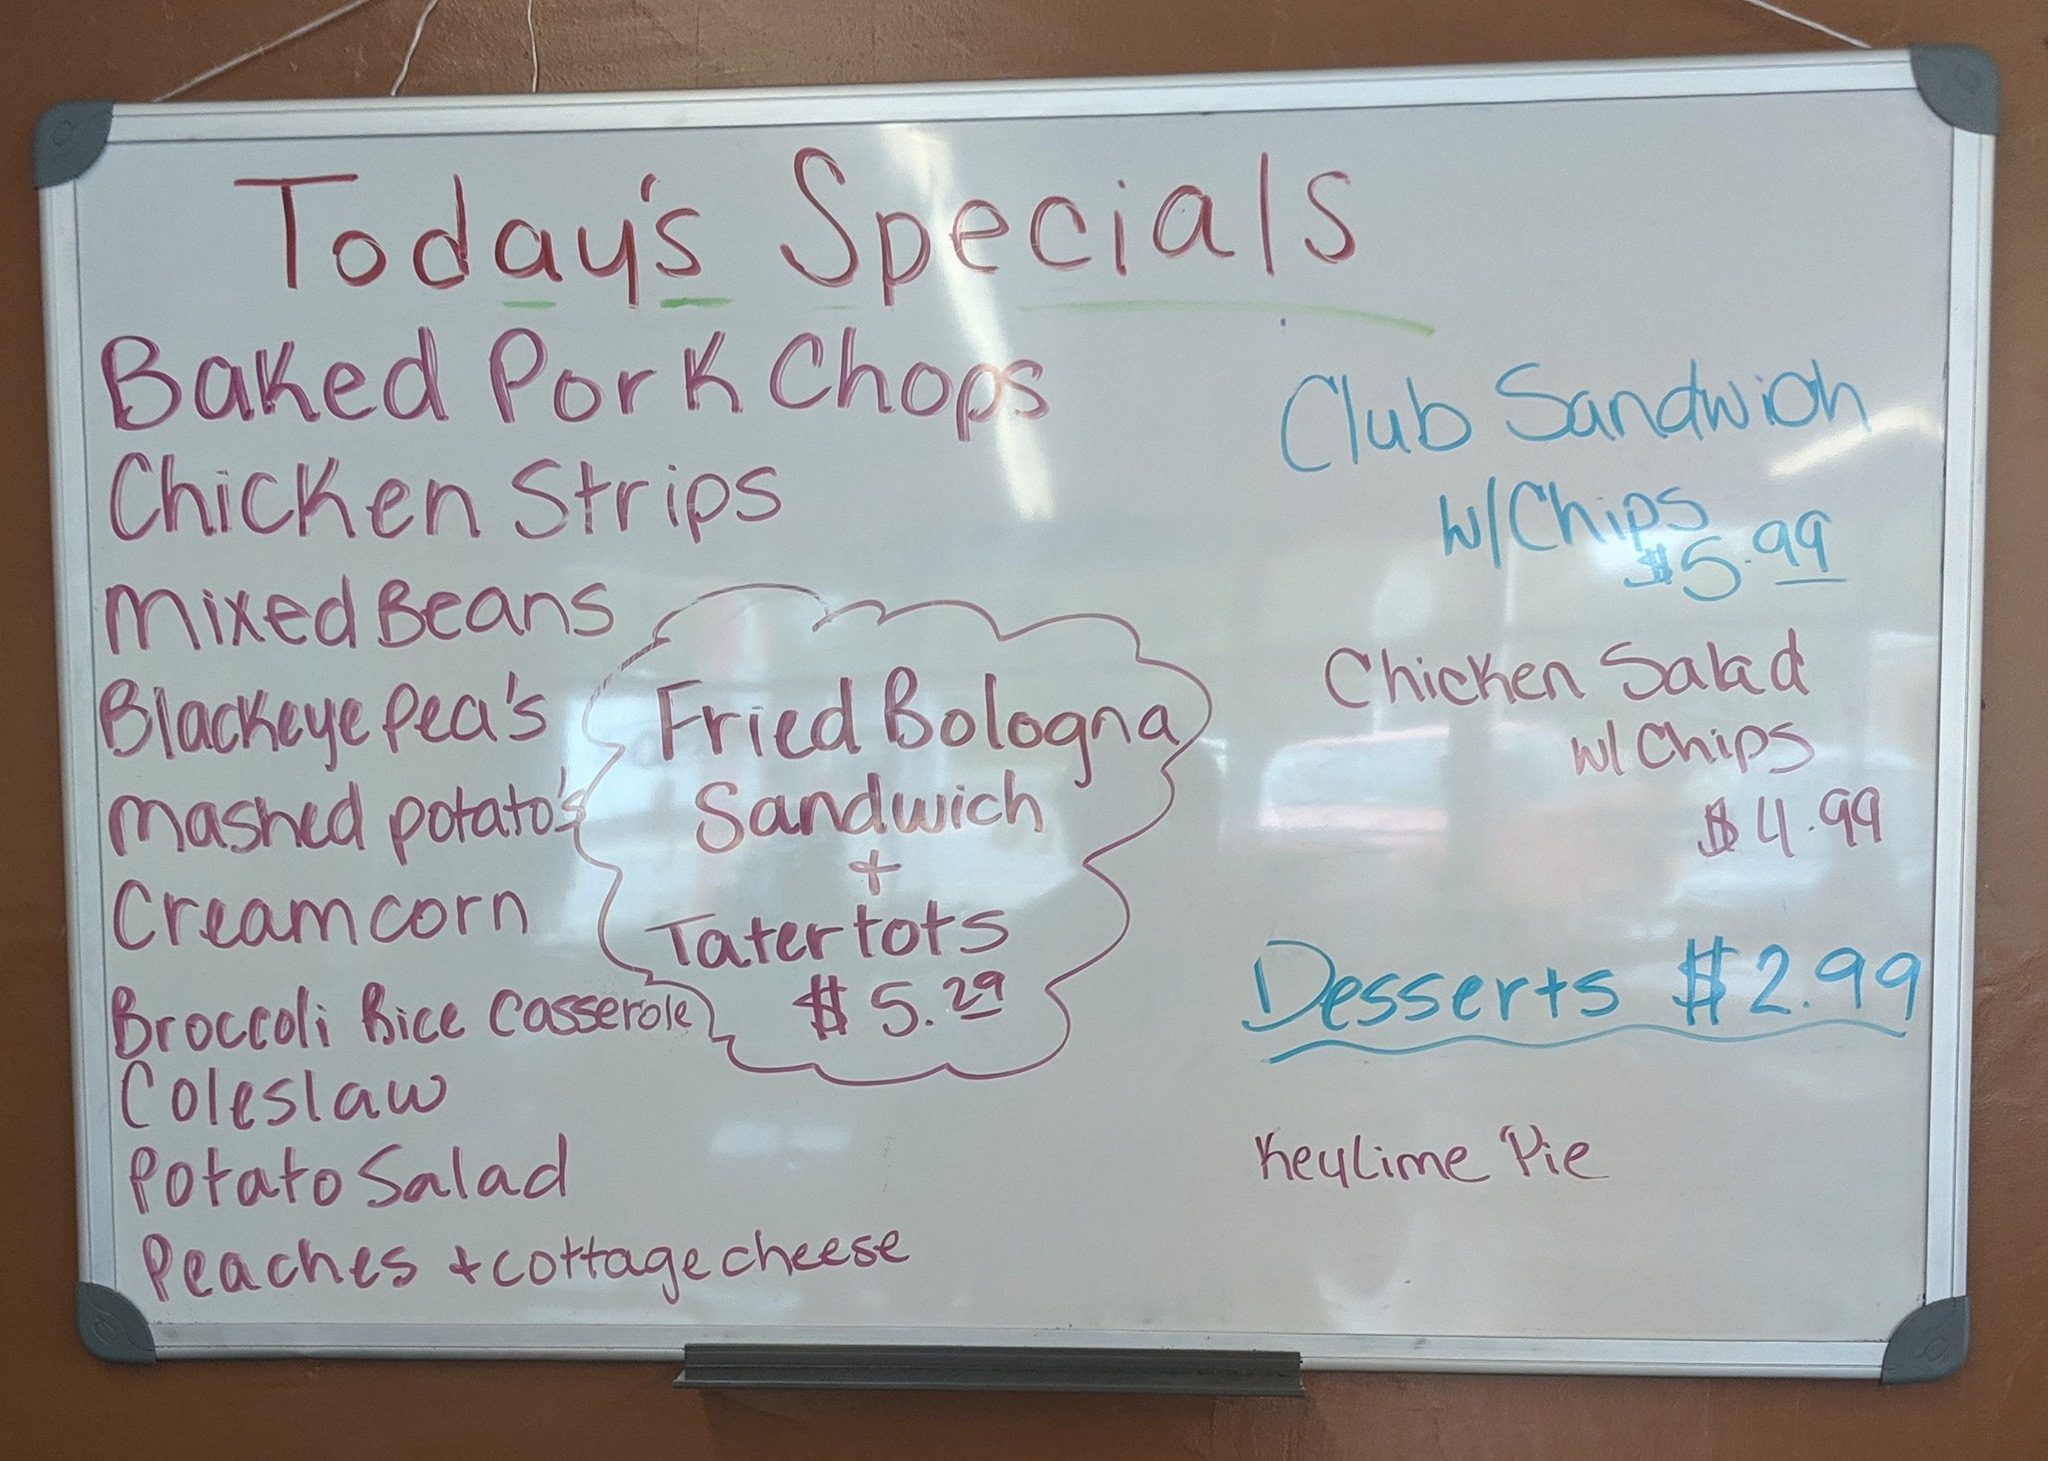 Today's Specials
Baked Pork Chops
Chicken Strips
Mixed Beans
Blackeye Pea's
Mashed potato's
Cream corn
Broccoli Rice Casserole
Coleslaw
Potato Salad
Peaches + cottage cheese
Fried Bologna
Sandwich
+
Tater tots
$5.29
Club Sandwich
w/Chips
$5.99
Chicken Salad
w/ Chips
$4.99
Desserts $2.99
KeyLime Pie